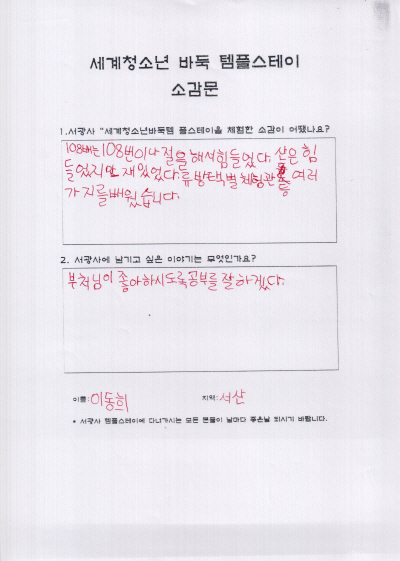 세계청소년 바둑 템플스테이
소감문
1.서광사 "세계청소년바둑템 플스테이을 체험한 소감이 어땠나요?
108배는 108번이나 절을 해서 힘들었다. 산은 힘
들었지만 재밌었다. 류방택별체험관 등 여러
가지를 배웠습니다.
2. 서광사에 남기고 싶은 이야기는 무엇인가요?
부처님이 좋아하시도록 공부를 잘 하겠다.
이름: 이동희 지역: 서산
* 서광사 템플스테이에 다녀가시는 모든 분들이 날마다 좋은날 되시기 바랍니다.